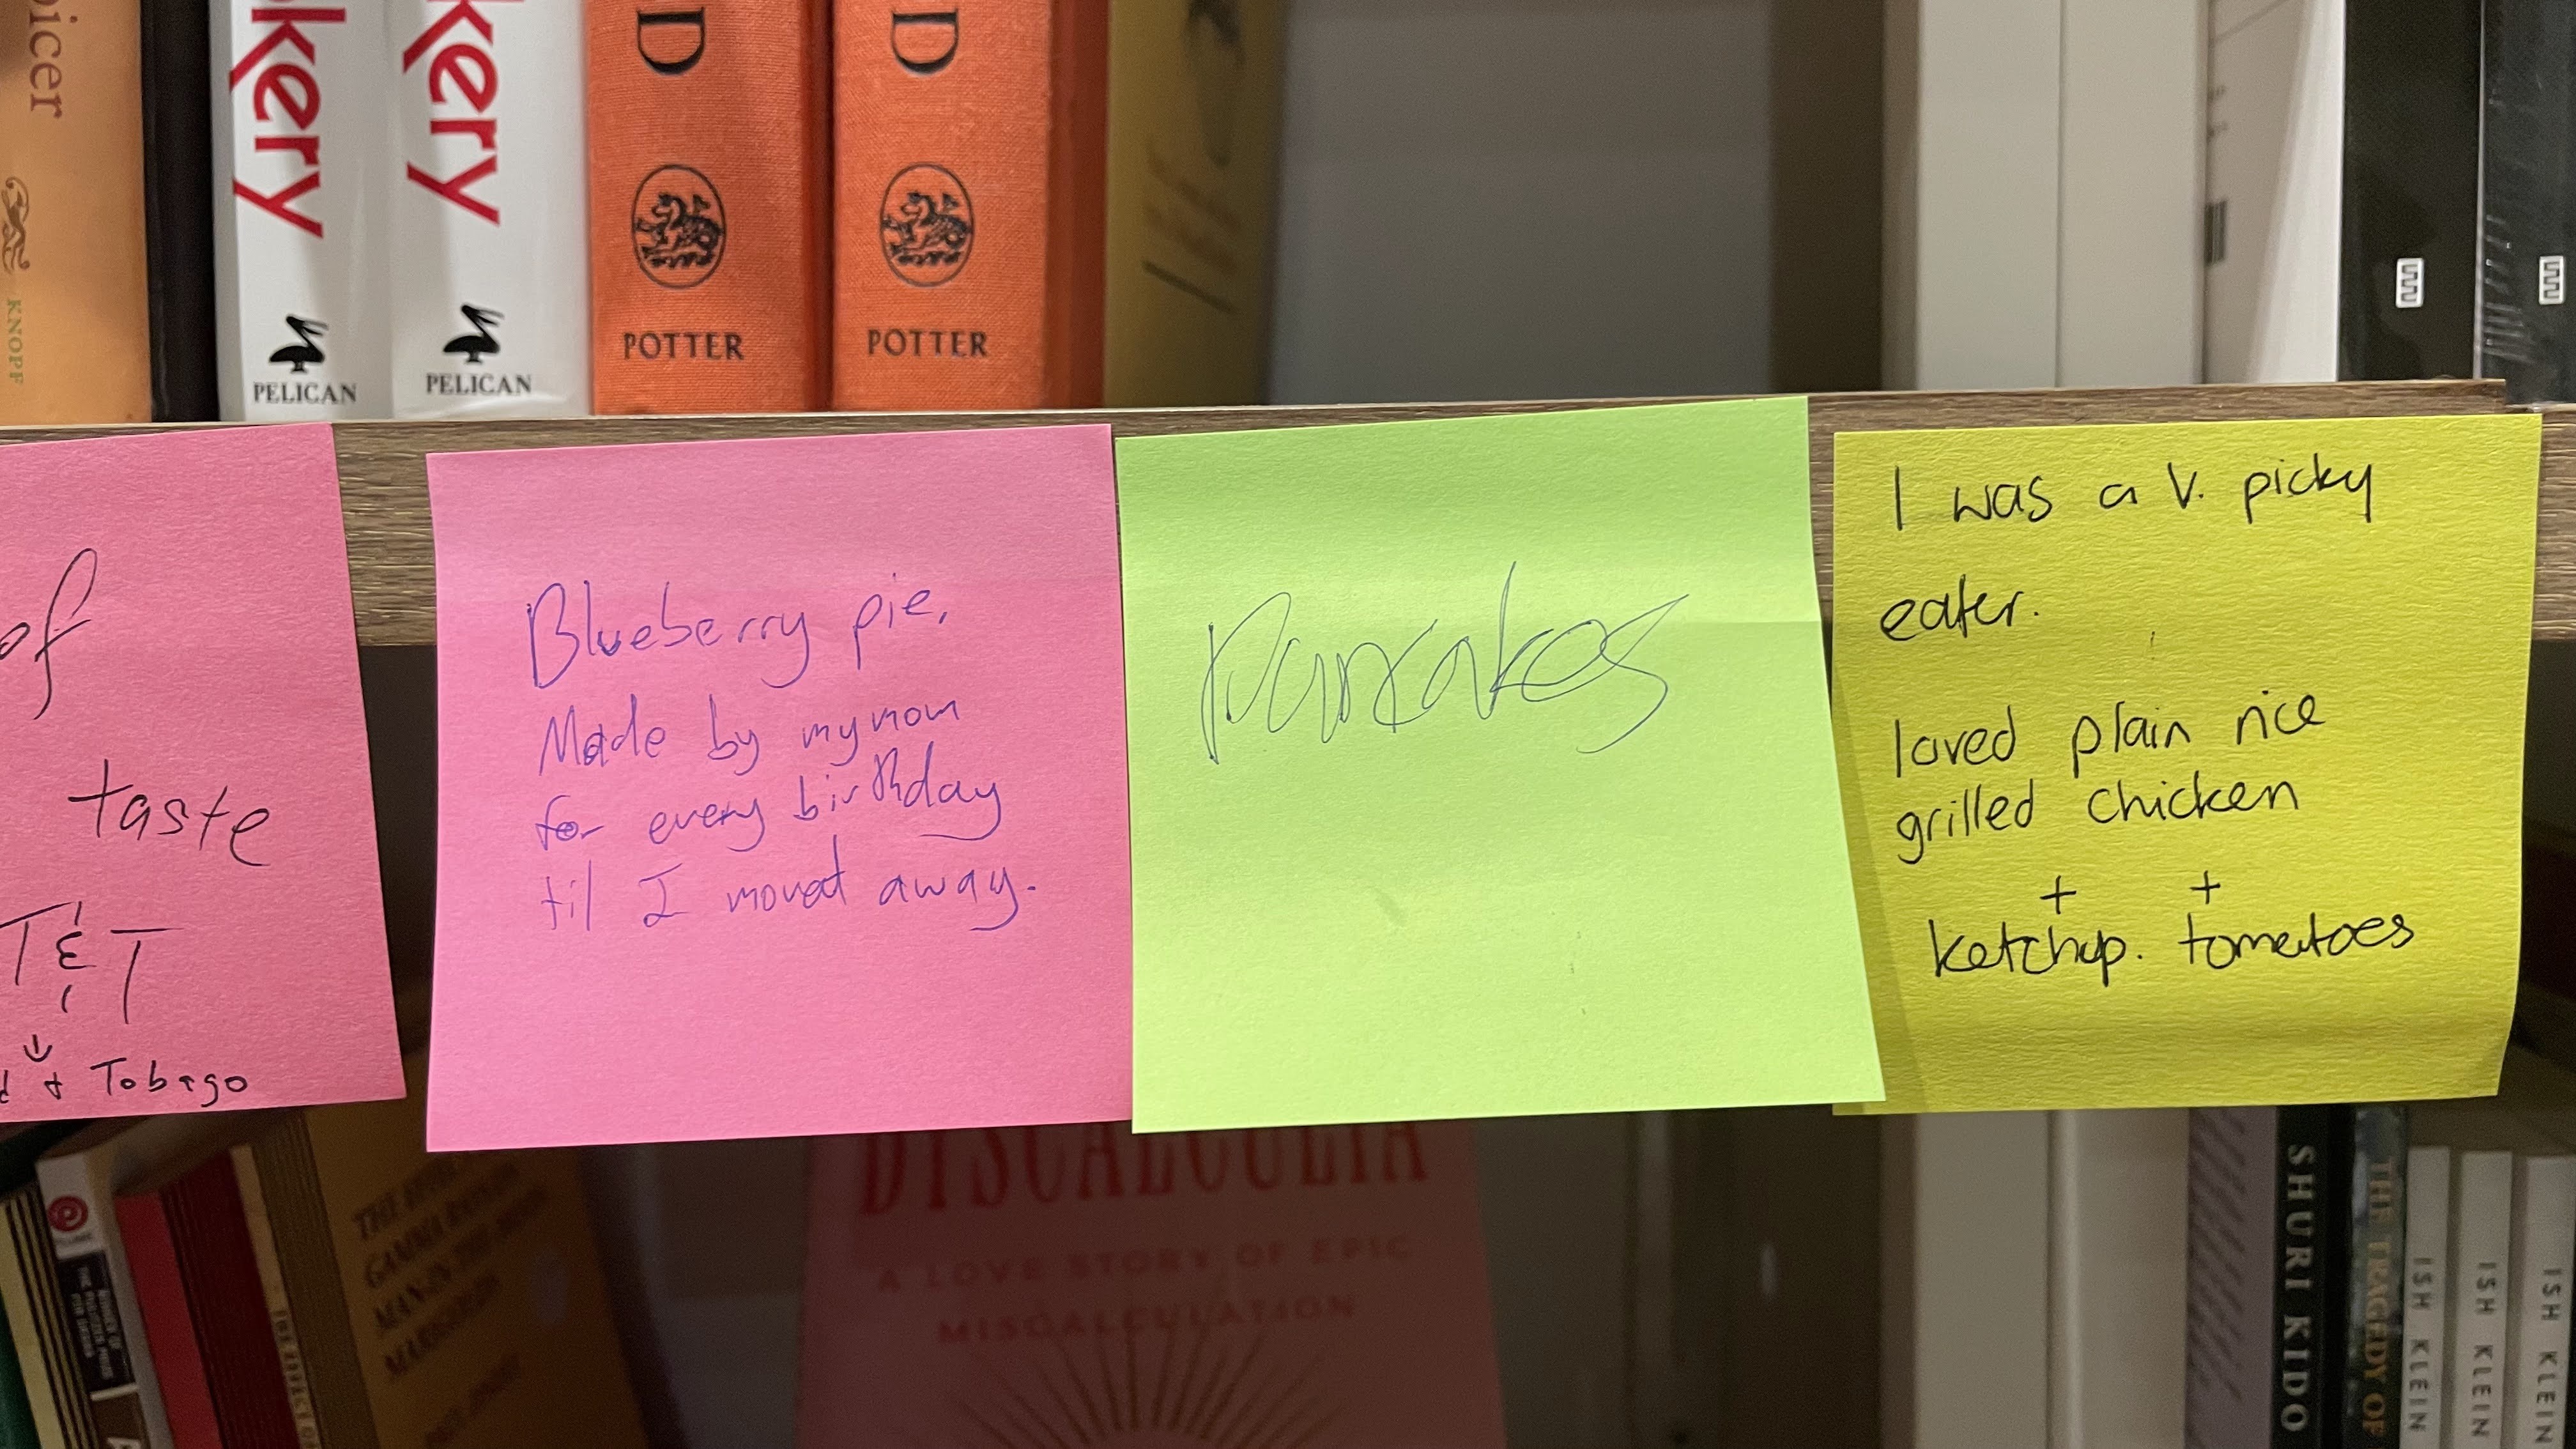 icer
KNOPF
kery
PELICAN
kery
PELICAN
D
POTTER
D
POTTER
of
taste
T & T
+ Tobago
Blueberry pie,
Made by my mom
for every birthday
til I moved away.
Pancakes
I was a V. picky
eater.
loved plain rice
grilled chicken
+ +
ketchup. tomatoes
DYSCALCULIA
A LOVE STORY OF EPIC
MISCALCULATION
SHURI KIDO
THE TRAGEDY OF
ISH KLEIN
ISH KLEIN
ISH KLEIN